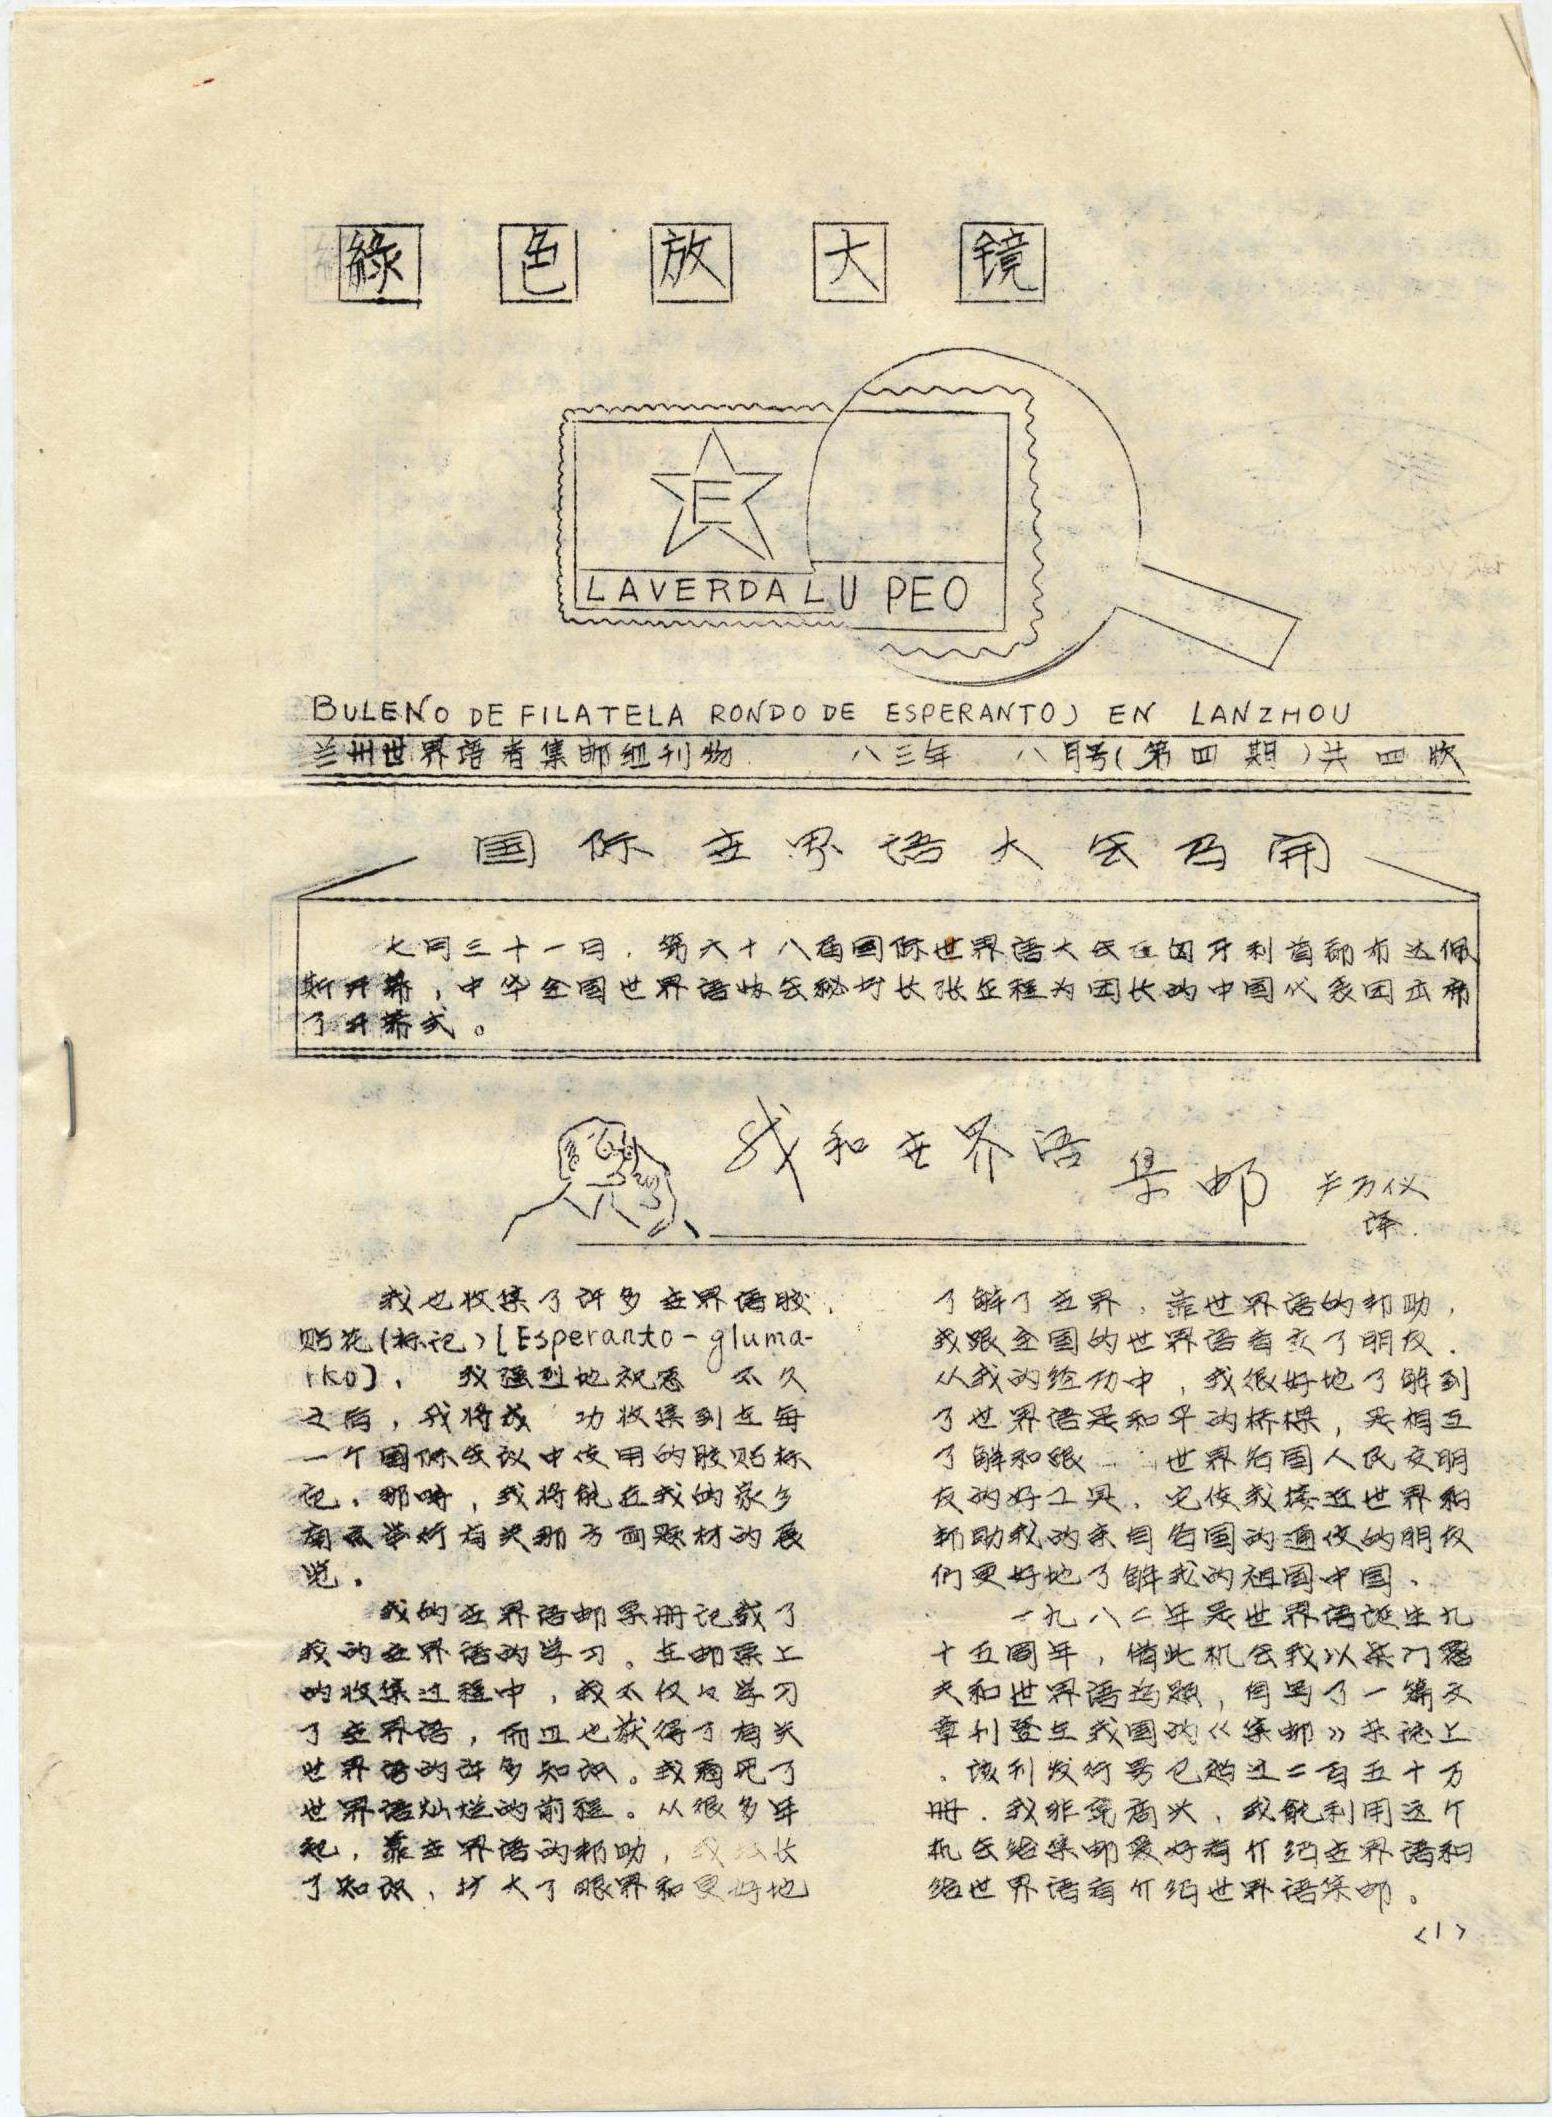 綠色放大镜
E
LA VERDA LUPEO
BULENO DE FILATELA RONDO DE ESPERANTOJ EN LANZHOU
兰州世界语者集邮组刊物 八三年 八月号(第四期)共四版
国际世界语大会召开
七月三十一日，第六十八届国际世界语大会在匈牙利首都布达佩
斯开幕，中华全国世界语协会秘书长张企程为团长的中国代表团出席
了开幕式。
我和世界语集邮
卢万仪
译.
我也收集了许多世界语胶
贴花(标记)[Esperanto-gluma-
rko]. 我强烈地祝愿 不久
之后，我将成 功收集到在每
一个国际会议中使用的胶贴标
记．那时，我将能在我的家乡
举行有关那方面题材的展
览．
我的世界语邮票册记载了
我的世界语的学习。在邮票上
的收集过程中，我不仅々学习
了世界语，而且也获得了有关
世界语的许多知识。我看见了
世界语灿烂的前程。从很多年
起，靠世界语的帮助，我 长
了知识，扩大了眼界和更好地
了解了世界，靠世界语的帮助，
我跟全国的世界语者交了朋友．
从我的经历中，我很好地了解到
了世界语是和平的桥梁，是相互
了解和跟 世界各国人民交朋
友的好工具．它使我接近世界和
帮助我的来自各国的通信的朋友
们更好地了解我的祖国中国．
一九八二年是世界语诞生九
十五周年，借此机会我以柴门霍
夫和世界语为题，写了一篇文
章刊登在我国的《集邮》杂志上
．该刊发行号已超过二百五十万
册．我非常高兴，我能利用这个
机会给集邮爱好者介绍世界语和
给世界语者介绍世界语集邮。
<1>